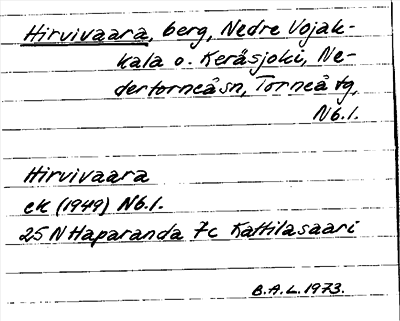 Hirvivaara, berg, Nedre Vojak-
kala o. Keräsjoki, Ne-
dertorneå sn, Torneå tg,
Nb.l.
Hirvivaara
ek (1949) Nb.l.
25 N Haparanda 7c Kattilasaari
B.A.L. 1973.